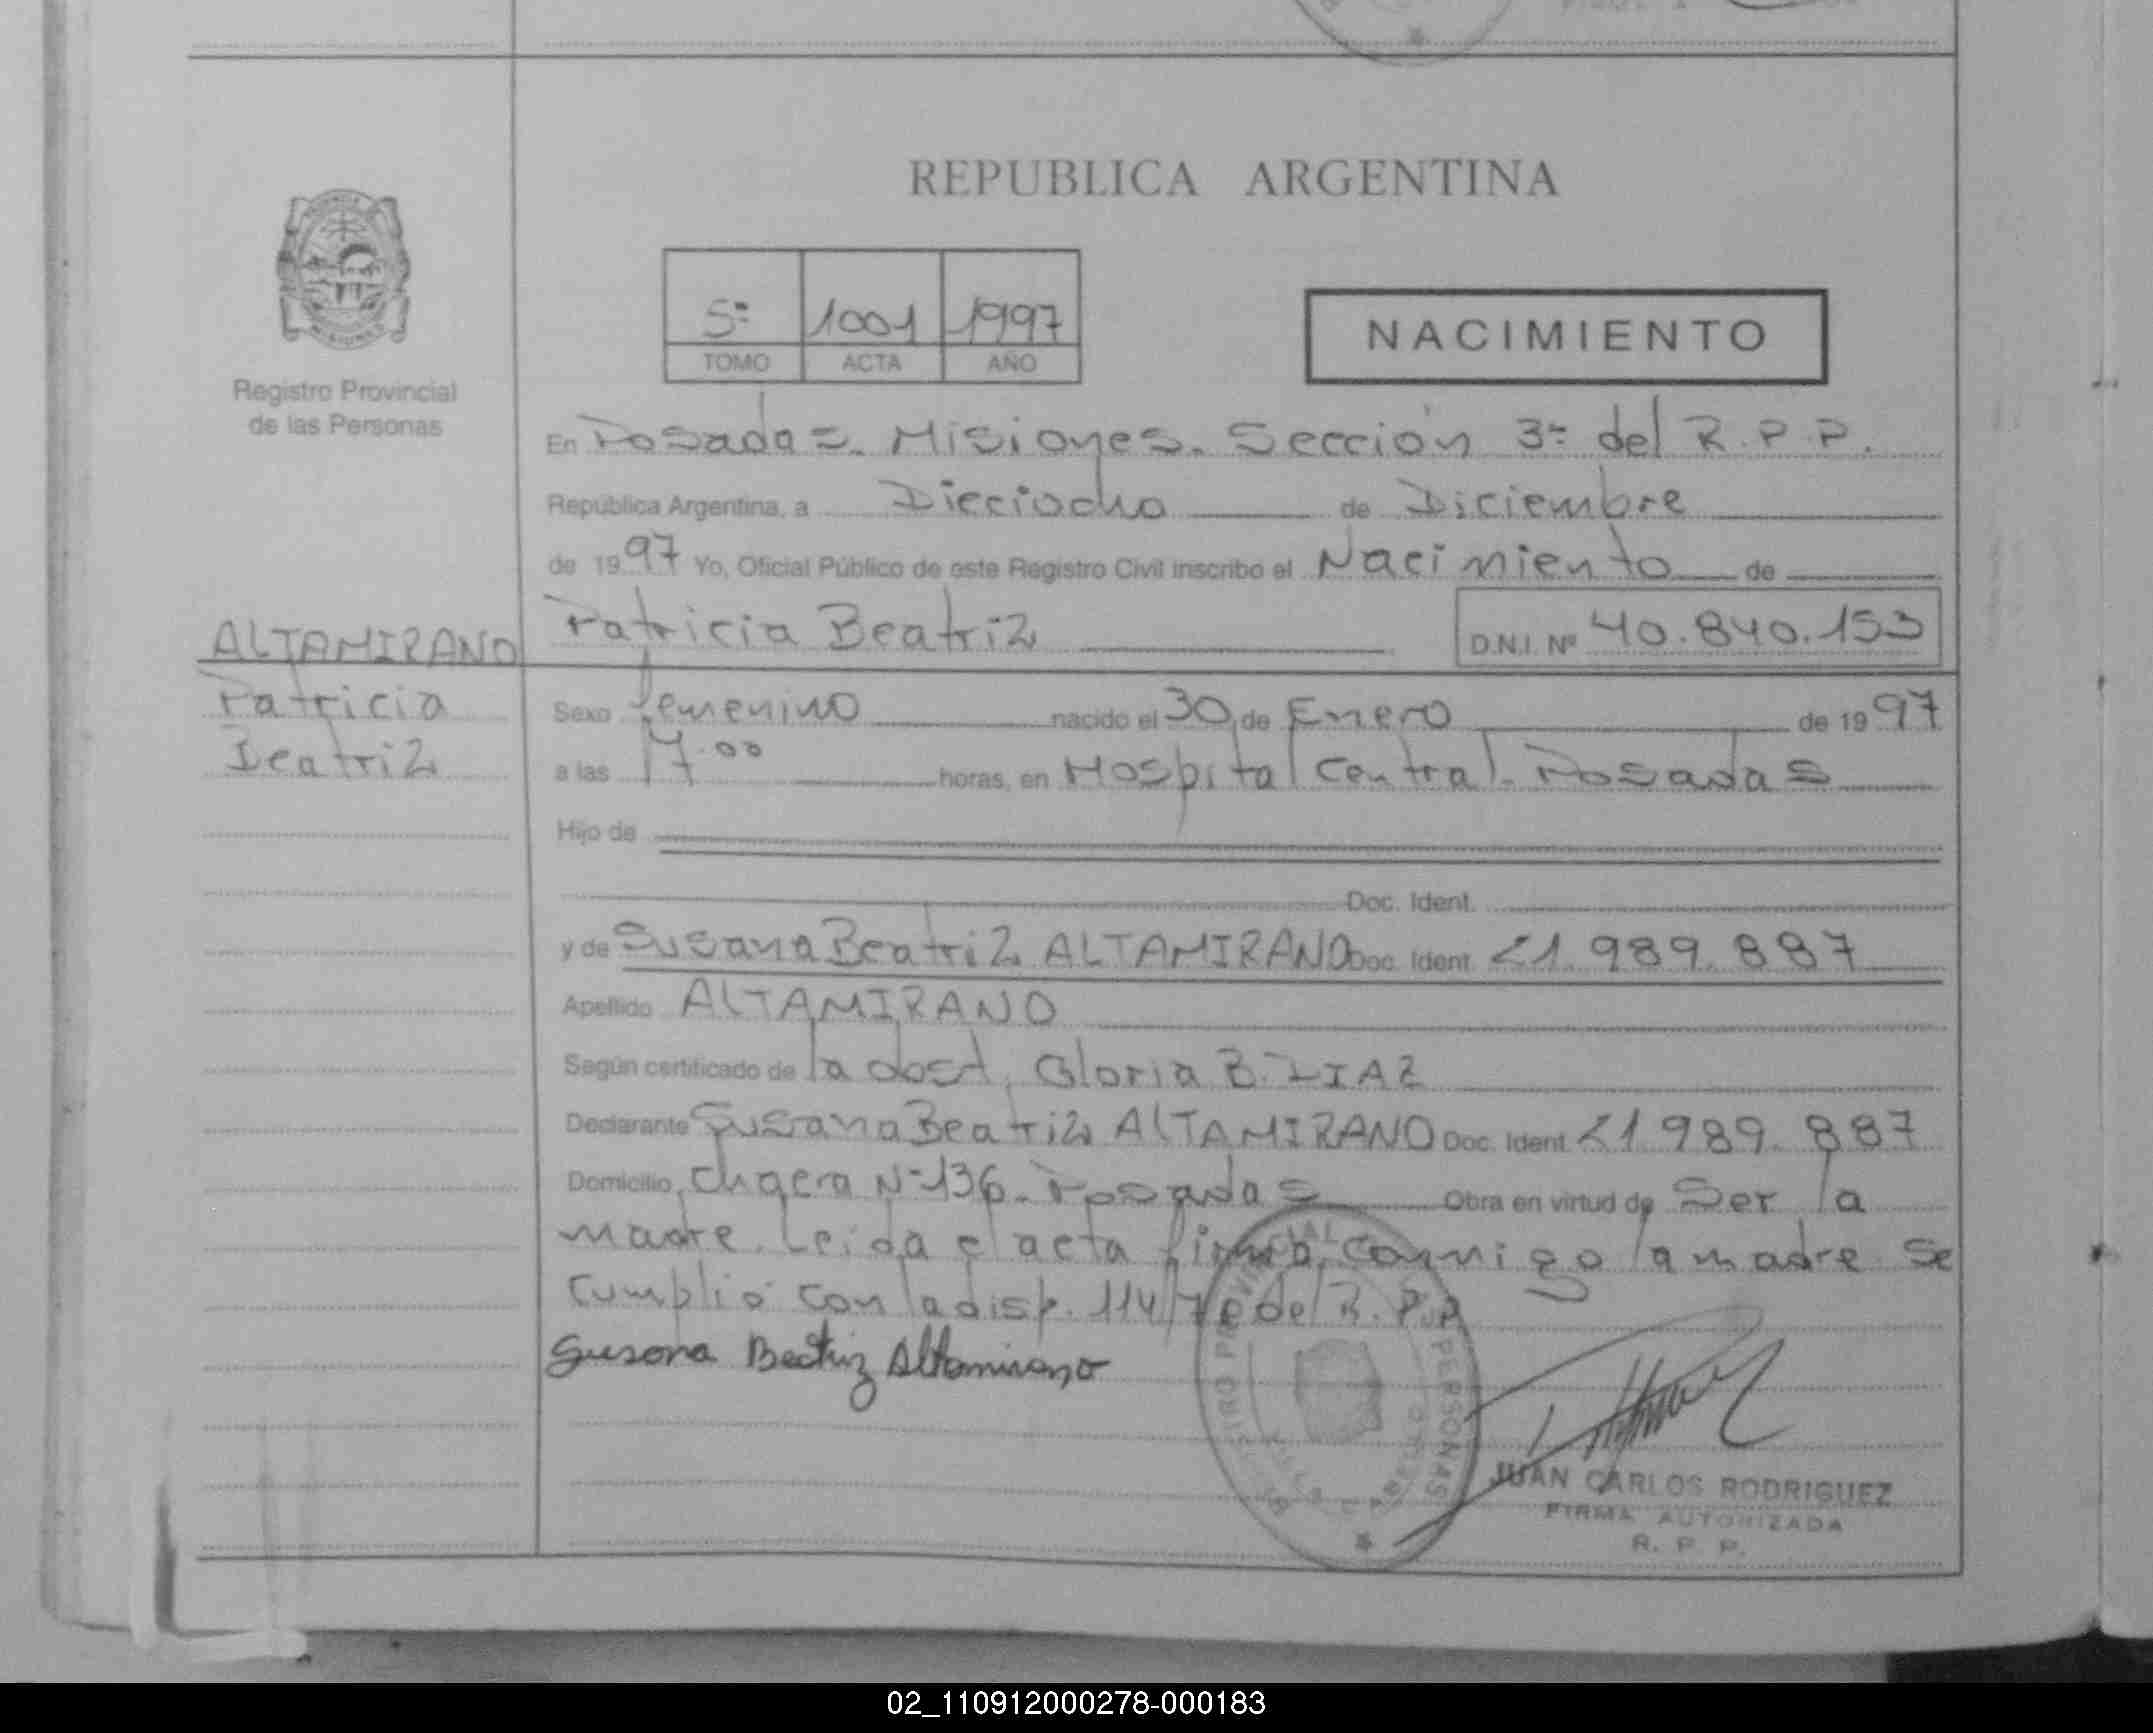 REPUBLICA ARGENTINA
5º 1001 1997
TOMO ACTA AÑO
NACIMIENTO
Registro Provincial
de las Personas
En Posadas. Misiones. Sección 3ª del R.P.P.
República Argentina, a Dieciocho de Diciembre
de 1997 Yo, Oficial Público de este Registro Civil inscribo el Nacimiento de
ALTAMIRANO
Patricia
Beatriz
Patricia Beatriz D.N.I. Nº 40.840.153
Sexo femenino nacido el 30 de Enero de 1997
a las 17.00 horas, en Hospital Central. Posadas
Hijo de
Doc. Ident.
y de Susana Beatriz ALTAMIRANO Doc. Ident. 21.989.887
Apellido ALTAMIRANO
Según certificado de la Gloria B. DIAZ
Declarante Susana Beatriz ALTAMIRANO Doc. Ident. 21.989.887
Domicilio Chacra Nº 136. Posadas Obra en virtud de Ser la
madre. Leida el acta firma conmigo la madre se
cumplió con la disp. del R.P.P
Susana Beatriz Altamirano
JUAN CARLOS RODRIGUEZ
FIRMA AUTORIZADA
R. P. P.
02_110912000278-000183